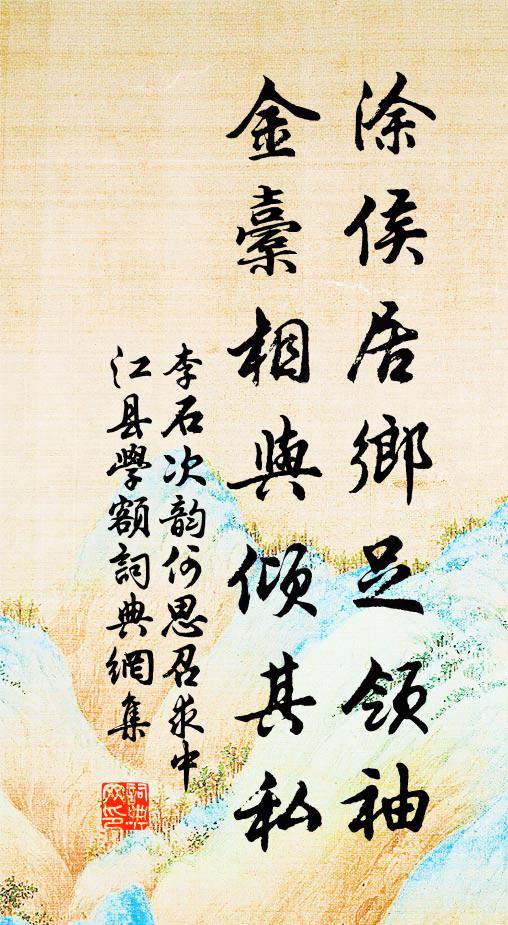 涂侯居鄉足領袖
金橐相與傾其私
李石次韵何思召求中
江县學額詞典網集